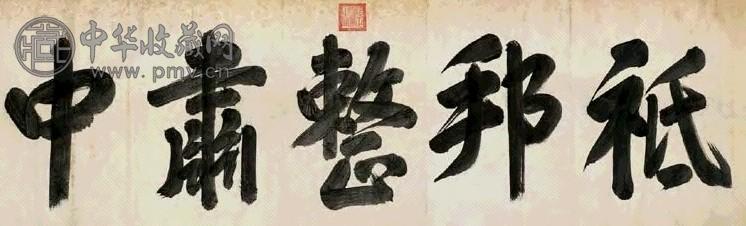 祗邦整肅中
中华收藏网
www.pmv.cn